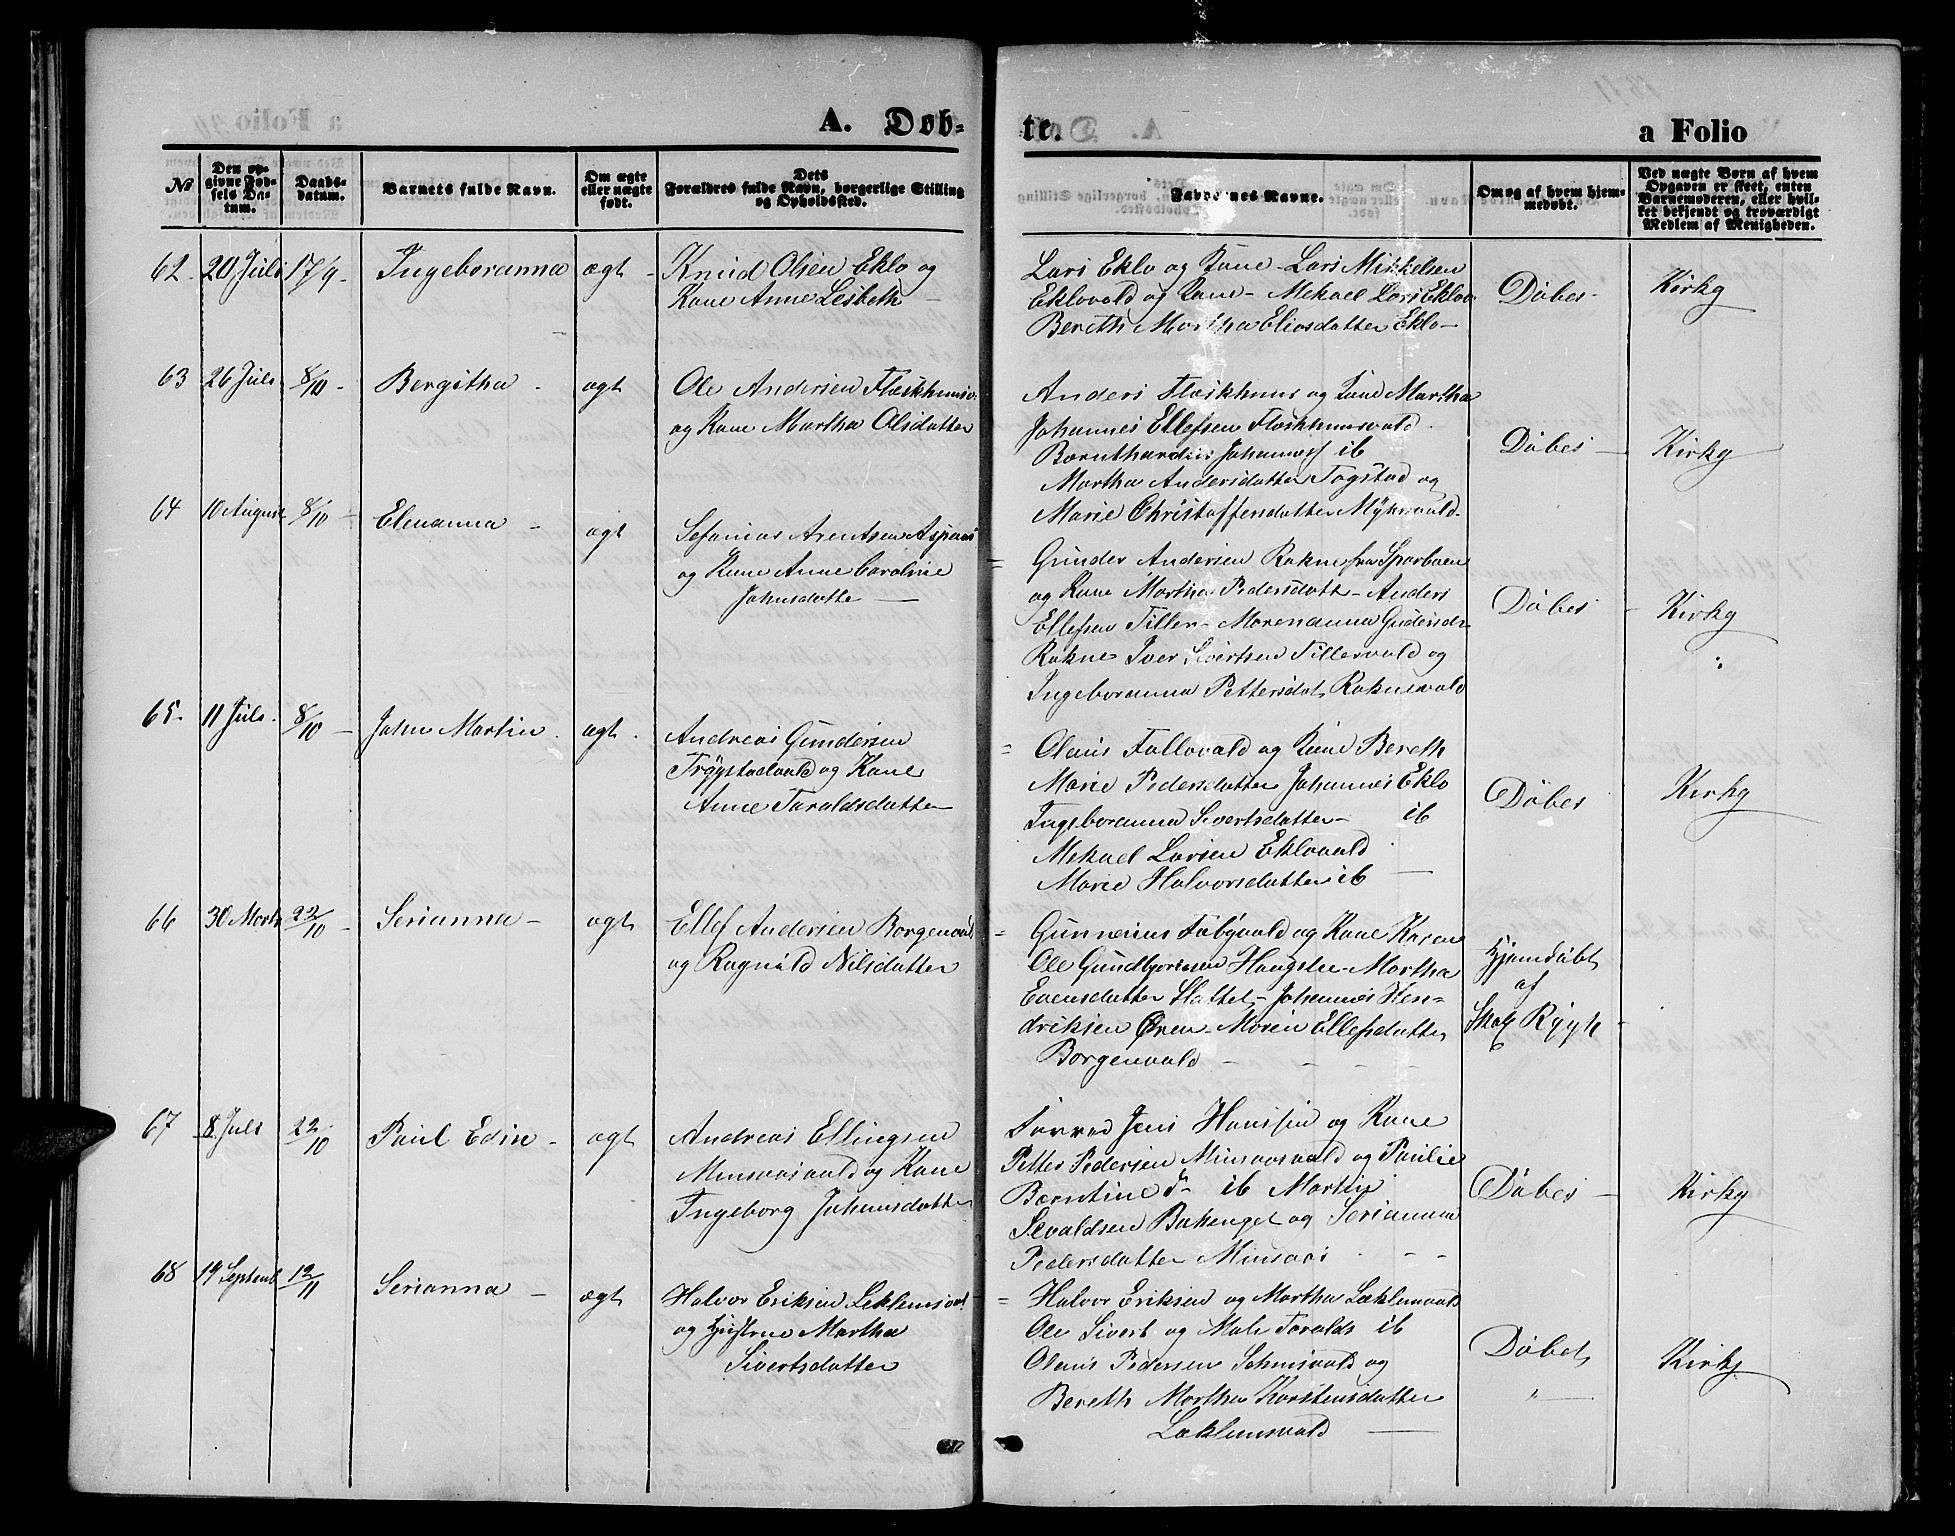 A. Døb-
te.
a Folio
No
Den op-
givne Fød-
sels Da-
tum.
Daabs-
datum.
Barnets fulde Navn.
Om ægte
eller uægte
født.
Dets
Forældres fulde Navn, borgerlige Stilling
og Opholdssted.
Faddernes Navne.
Om og af hvem hjem-
medøbt.
Ved uægte Børn af hvem
Opgaven er skeet, enten
Barnemoderen, eller hvil-
ket bekjendt og troværdigt
Medlem af Menigheden.
62. 20 Juli 17/9 Ingeboranna ægt
Knud Olsen Eklo og
Kone Anne Lesbeth
Lars Eklo og Kone Lars Mikkelsen
Eklovald og Kone Mekael Lars Eklov
Bereth Martha Eliasdatter Eklo
Døbes Kirky
63 26 Juli 8/10 Bergitha ægt
Ole Andersen Flæskhusv.
og Kone Martha Olsdatter
Anders Flæskhus og Kone Martha
Johannes Ellefsen Flæskhusvald
Bærnthardus Johannes ib
Martha Andersdatter Togstad og
Marie Christoffersdatter Myhrvald
Døbes Kirky
64 10 August 8/10 Elenanna ægt
Sefanias Arentsen Aspaas
og Kone Anne Caroline
Johnsdatte
Gunder Andersen Rokne fra Sparboen
og Kone Martha Pedersdatt Anders
Ellefsen Tiller Morenanna Gundersdr
Rokne Iver Sivertsen Tillervald og
Ingeboranna Pettersdat. Roknevald
Døbes Kirky
65 11 Juli 8/10 John Martin ægt
Andreas Gundersen
Trøgstadvald og Kone
Anne Taraldsdatter
Olaus Fallovald og Kone Bereth
Marie Pedersdatter Johannes Eklo
Ingeboranna Sivertsdatter ib
Mekael Larsen Eklovald
Marie Halvorsdatter ib
Døbes Kirky
66 30 Marts 22/10 Serianna ægt
Ellef Andersen Borgenvald
og Ragnild Nilsdatter
Gunnerius Fåbyvald og Kone Karen
Ole Gundbjørnsen Haugslie Martha
Evensdatter Slattet Johannes Hen-
driksen Øren Moren Ellefsdatter
Borgenvald
Hjemdøbt
af
Skol Rygh
67 8 Juli 22/10 Paul Edin ægt
Andreas Ellingsen
Minsaasvald og Kone
Ingeborg Johannsdatter
Jens Hanssen og Kone
Petter Pedersen Minsaasvald og Paulie
Bærntine ib Martin
Sevaldsen Bakenget og Serianna
Pedersdatter Minsaas
Døbes Kirky
68 19 Septemb 12/11 Serianna ægt
Halvor Eriksen Leklemsvald
og Hustrue Martha
Sivertsdatter
Halvor Eriksen og Martha Læklemvald
Ole Sivert og Male Toralds ib
Olaus Pedersen Sehmsvald og
Bereth Martha Karstensdatter
Læklemsvald
Døbet Kirky